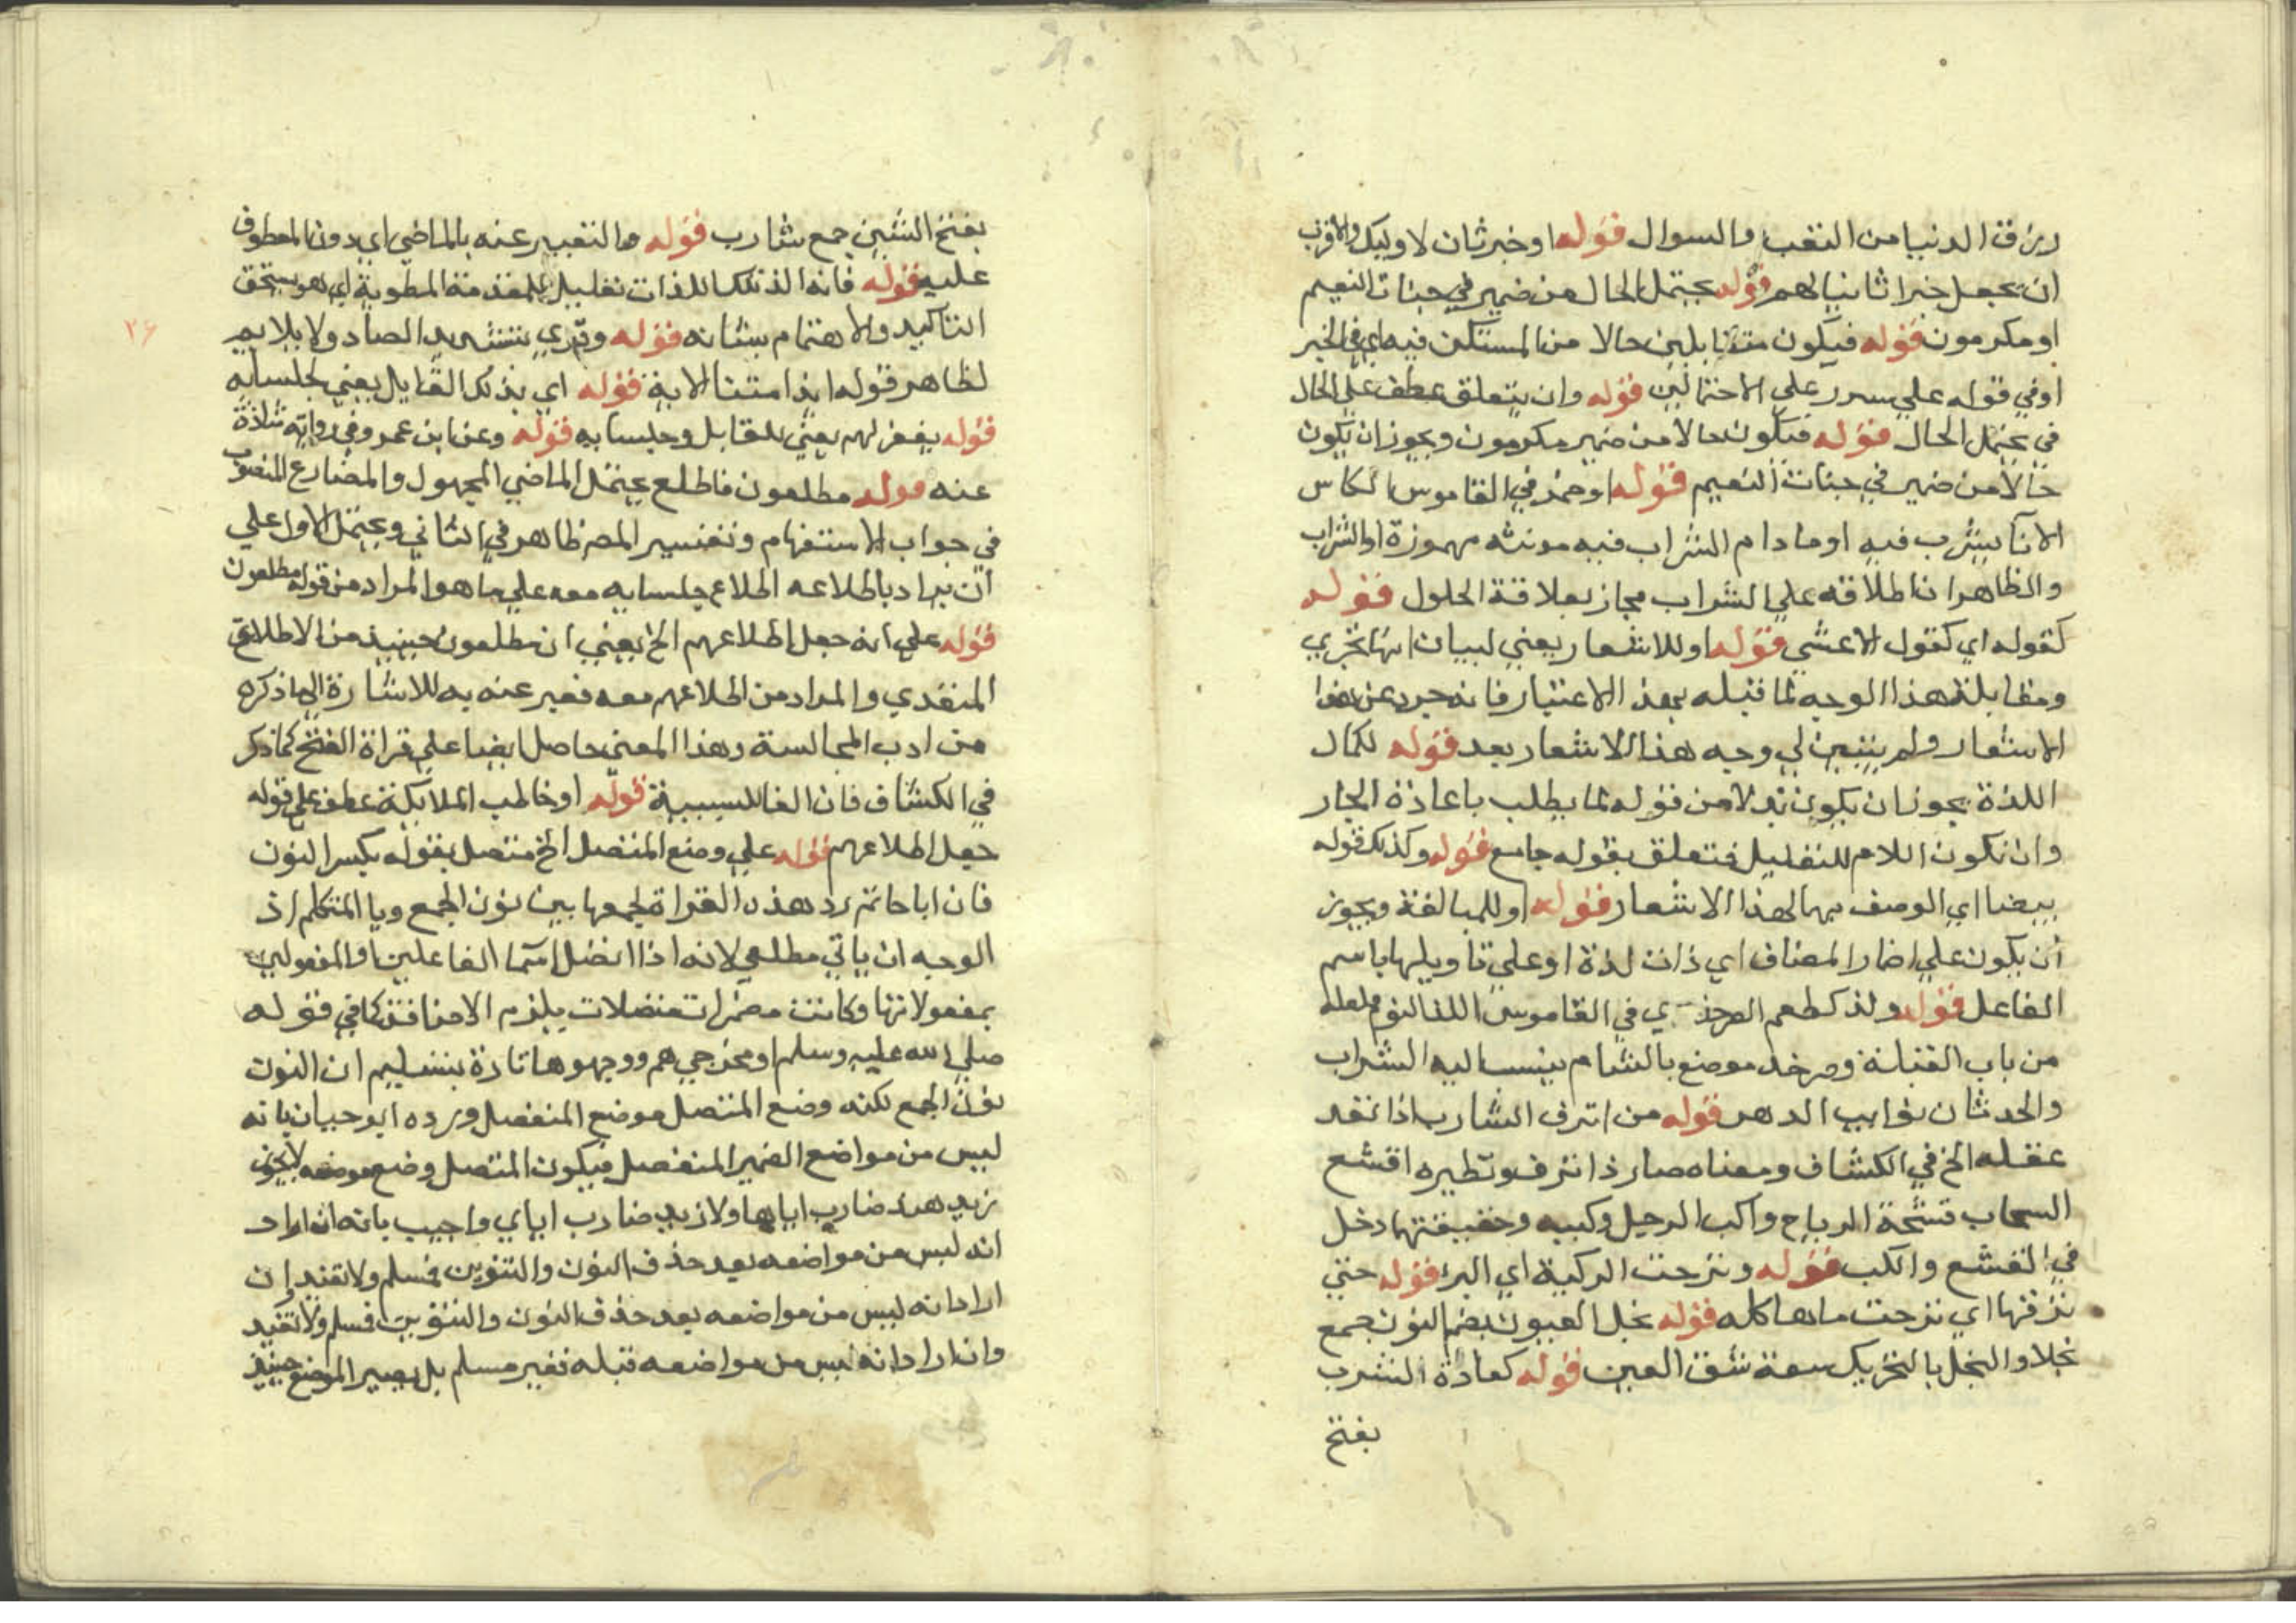 رزق الدنيا من التعب والسوال قوله او خبر ثان لاوليك والاقرب
ان يجعل خبرا ثانيا لهم قوله يحتمل الحال من ضمير في جنات النعيم
او مكرمون قوله فيكون متقابلين حالا من المستكن فيه اي في الخبر
او في قوله علي سرر علي الاحتمالين قوله وان يتعلق عطف علي الحال
في يحتمل الحال قوله فيكون حالا من ضمير مكرمون ويجوز ان يكون
حالا من ضمير في جنات النعيم قوله او خمر في القاموس الكاس
الانا يشرب فيه او ما دام الشراب فيه مونثه مهموزة او الشراب
والظاهر ان اطلاقه علي الشراب مجاز بعلاقة الحلول قوله
كقوله اي كقول الاعشي قوله او للاشعار يعني لبيان انها تجري
ومقابلة هذا الوجه لما قبله بهذ الاعتبار فانه جرد عن هذا
الاشعار ولم يتبين لي وجه هذا الاشعار بعد قوله لكمال
اللذة يجوز ان يكون بدلا من قوله لما يطلب باعادة الجار
وان تكون اللام للتعليل فتعلق بقوله جامع قوله وكذلك قوله
بيضا اي الوصف بها لهذا الاشعار قوله او للمبالغة ويجوز
ان يكون علي اضمار المضاف اي ذات لذة او علي تاويلها باسم
الفاعل قوله ولذ كطعم الصرخدي في القاموس اللذ النوم ولعله
من باب القتابة وصرخد موضع بالشام ينسب اليه الشراب
والحدثان نوايب الدهر قوله من انزف الشارب اذا نفد
عقله الخ في الكشاف ومعناه صار ذا نزف ونظيره اقشع
السحاب قشعة الرياح واكب الرجل وكببه وحقيقتهما دخل
في القشع والكب قوله ونزحت الركية اي البير قوله حتي
نزفتها اي نزحت ماها كله قوله نجل العيون بضم النون جمع
نجلا والنجل بالتحريك سعة شق العين قوله كعادة الشرب
بفتح
بفتح الشين جمع شارب قوله والتعبير عنه بالماضي اي دون المعطوف
عليه قوله فانه الذ تلك اللذات تعليل للمقدمة المطوية اي هو يستحق
التاكيد والاهتمام بشانه قوله وقري بتشديد الصاد ولا يلايم
٢۶
لظاهر قوله ايذا متنا الاية قوله اي بذلك القايل يعني لجلسايه
قوله يفغر لهم يعني للقايل وجلسايه قوله وعن ابن عمرو في رواية شاذة
عنه قوله مطلعون فاطلع يحتمل الماضي المجهول والمضارع المنصوب
في جواب الاستفهام وتفسير المصر ظاهر في الثاني ويحتمل الاول علي
ان يراد باطلاعه اطلاع جلسايه معه علي ما هو المراد من قوله مطلعون
قوله علي انه جعل اطلاعهم الخ يعني ان مطلعون حينيذ من الاطلاع
المتعدي والمراد من اطلاعهم معه فعبر عنه به للاشارة الي ما ذكره
من ادب المجالسة وهذا المعني حاصل ايضا علي قراة الفتح كما ذكر
في الكشاف فان الفا للسببية قوله او خاطب الملايكة عطف علي قوله
جعل اطلاعهم قوله علي وضع المتصل الخ متصل بقوله بكسر النون
فان ابا حاتم رد هذه القراة لجمعها بين نون الجمع ويا المتكلم اذ
الوجه ان ياتي مطلعي لانه اذا اتصل اسما الفاعلين والمفعولين
بمفعولاتها وكانت مضمرات متصلات يلزم الاضافة كما في قوله
صلي الله عليه وسلم او مخرجي هم ووجهوها تارة بتسليم ان النون
نون الجمع لكنه وضع المتصل موضع المنفصل ورده ابو حيان بانه
ليس من مواضع الضمير المنفصل فيكون المتصل وضع موضعه لا يجوز
زيد هند ضارب اياها ولا زيد ضارب اياي واجيب بانه ان اراد
انه ليس من مواضعه بعد حذف النون والتنوين فمسلم ولا يفيد ان
اراد انه ليس من مواضعه بعد حذف النون والتنوين فمسلم ولا تفيد
وان اراد انه ليس من مواضعه قبله فغير مسلم بل يصير الموضع حينيذ